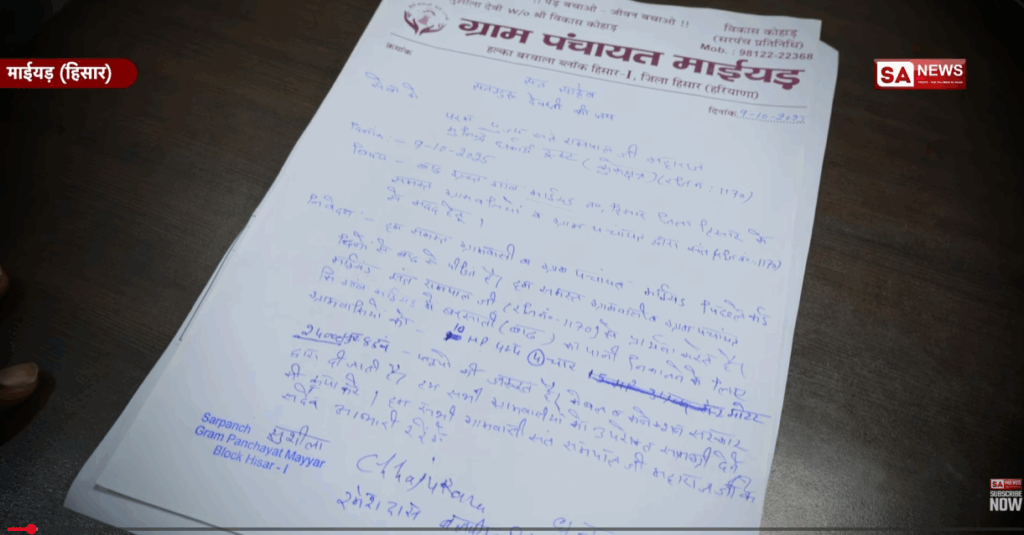 !! पेड़ बचाओ - जीवन बचाओ !!
सुशीला देवी w/o श्री विकास कोहाड़
विकास कोहाड़
(सरपंच प्रतिनिधि)
Mob. : 98122-22368
ग्राम पंचायत माईयड़
हल्का बरवाला ब्लॉक हिसार-I, जिला हिसार (हरियाणा)
क्रमांक
दिनांक 9-10-2025
माईयड़ (हिसार)
SA NEWS
सत साहेब
सतगुरु देवजी की जय
सेवा में
परम पूज्य संत रामपाल जी महाराज
मुनिन्द्र धर्मार्थ ट्रस्ट (कुरुक्षेत्र) (रजि नं : 1170)
दिनांक :- 9-10-2025
विषय - बाढ़ ग्रस्त गांव माईयड़ हिसार जिला हिसार के
समस्त ग्रामवासियों व ग्राम पंचायत द्वारा (रजि नं:-1170)
से मदद हेतु ।
निवेदन :- हम समस्त ग्रामवासी व ग्राम पंचायत माईयड़ पिछले कई
दिनों से बाढ़ से पीड़ित है। हम समस्त ग्रामवासी व ग्राम पंचायत
माईयड़ संत रामपाल जी (रजि नं-1170) से प्रार्थना करते है।
कि गांव माईयड़ में बरसाती (बाढ़) का पानी निकालने के लिए
ग्रामवासियों को - 10 HP पम्प 4 चार मोटर
की जरूरत है। सरकार
द्वारा दी जाती है। हम सभी ग्रामवासियों को उपरोक्त सामग्री देने
की कृपा करे। हम सभी ग्रामवासी संत रामपाल जी महाराज जी के
सदैव आभारी रहेंगे
सुशीला
Sarpanch
Gram Panchayat Mayyar
Block Hisar - I
रमेश दास
SA NEWS
SUBSCRIBE
NOW